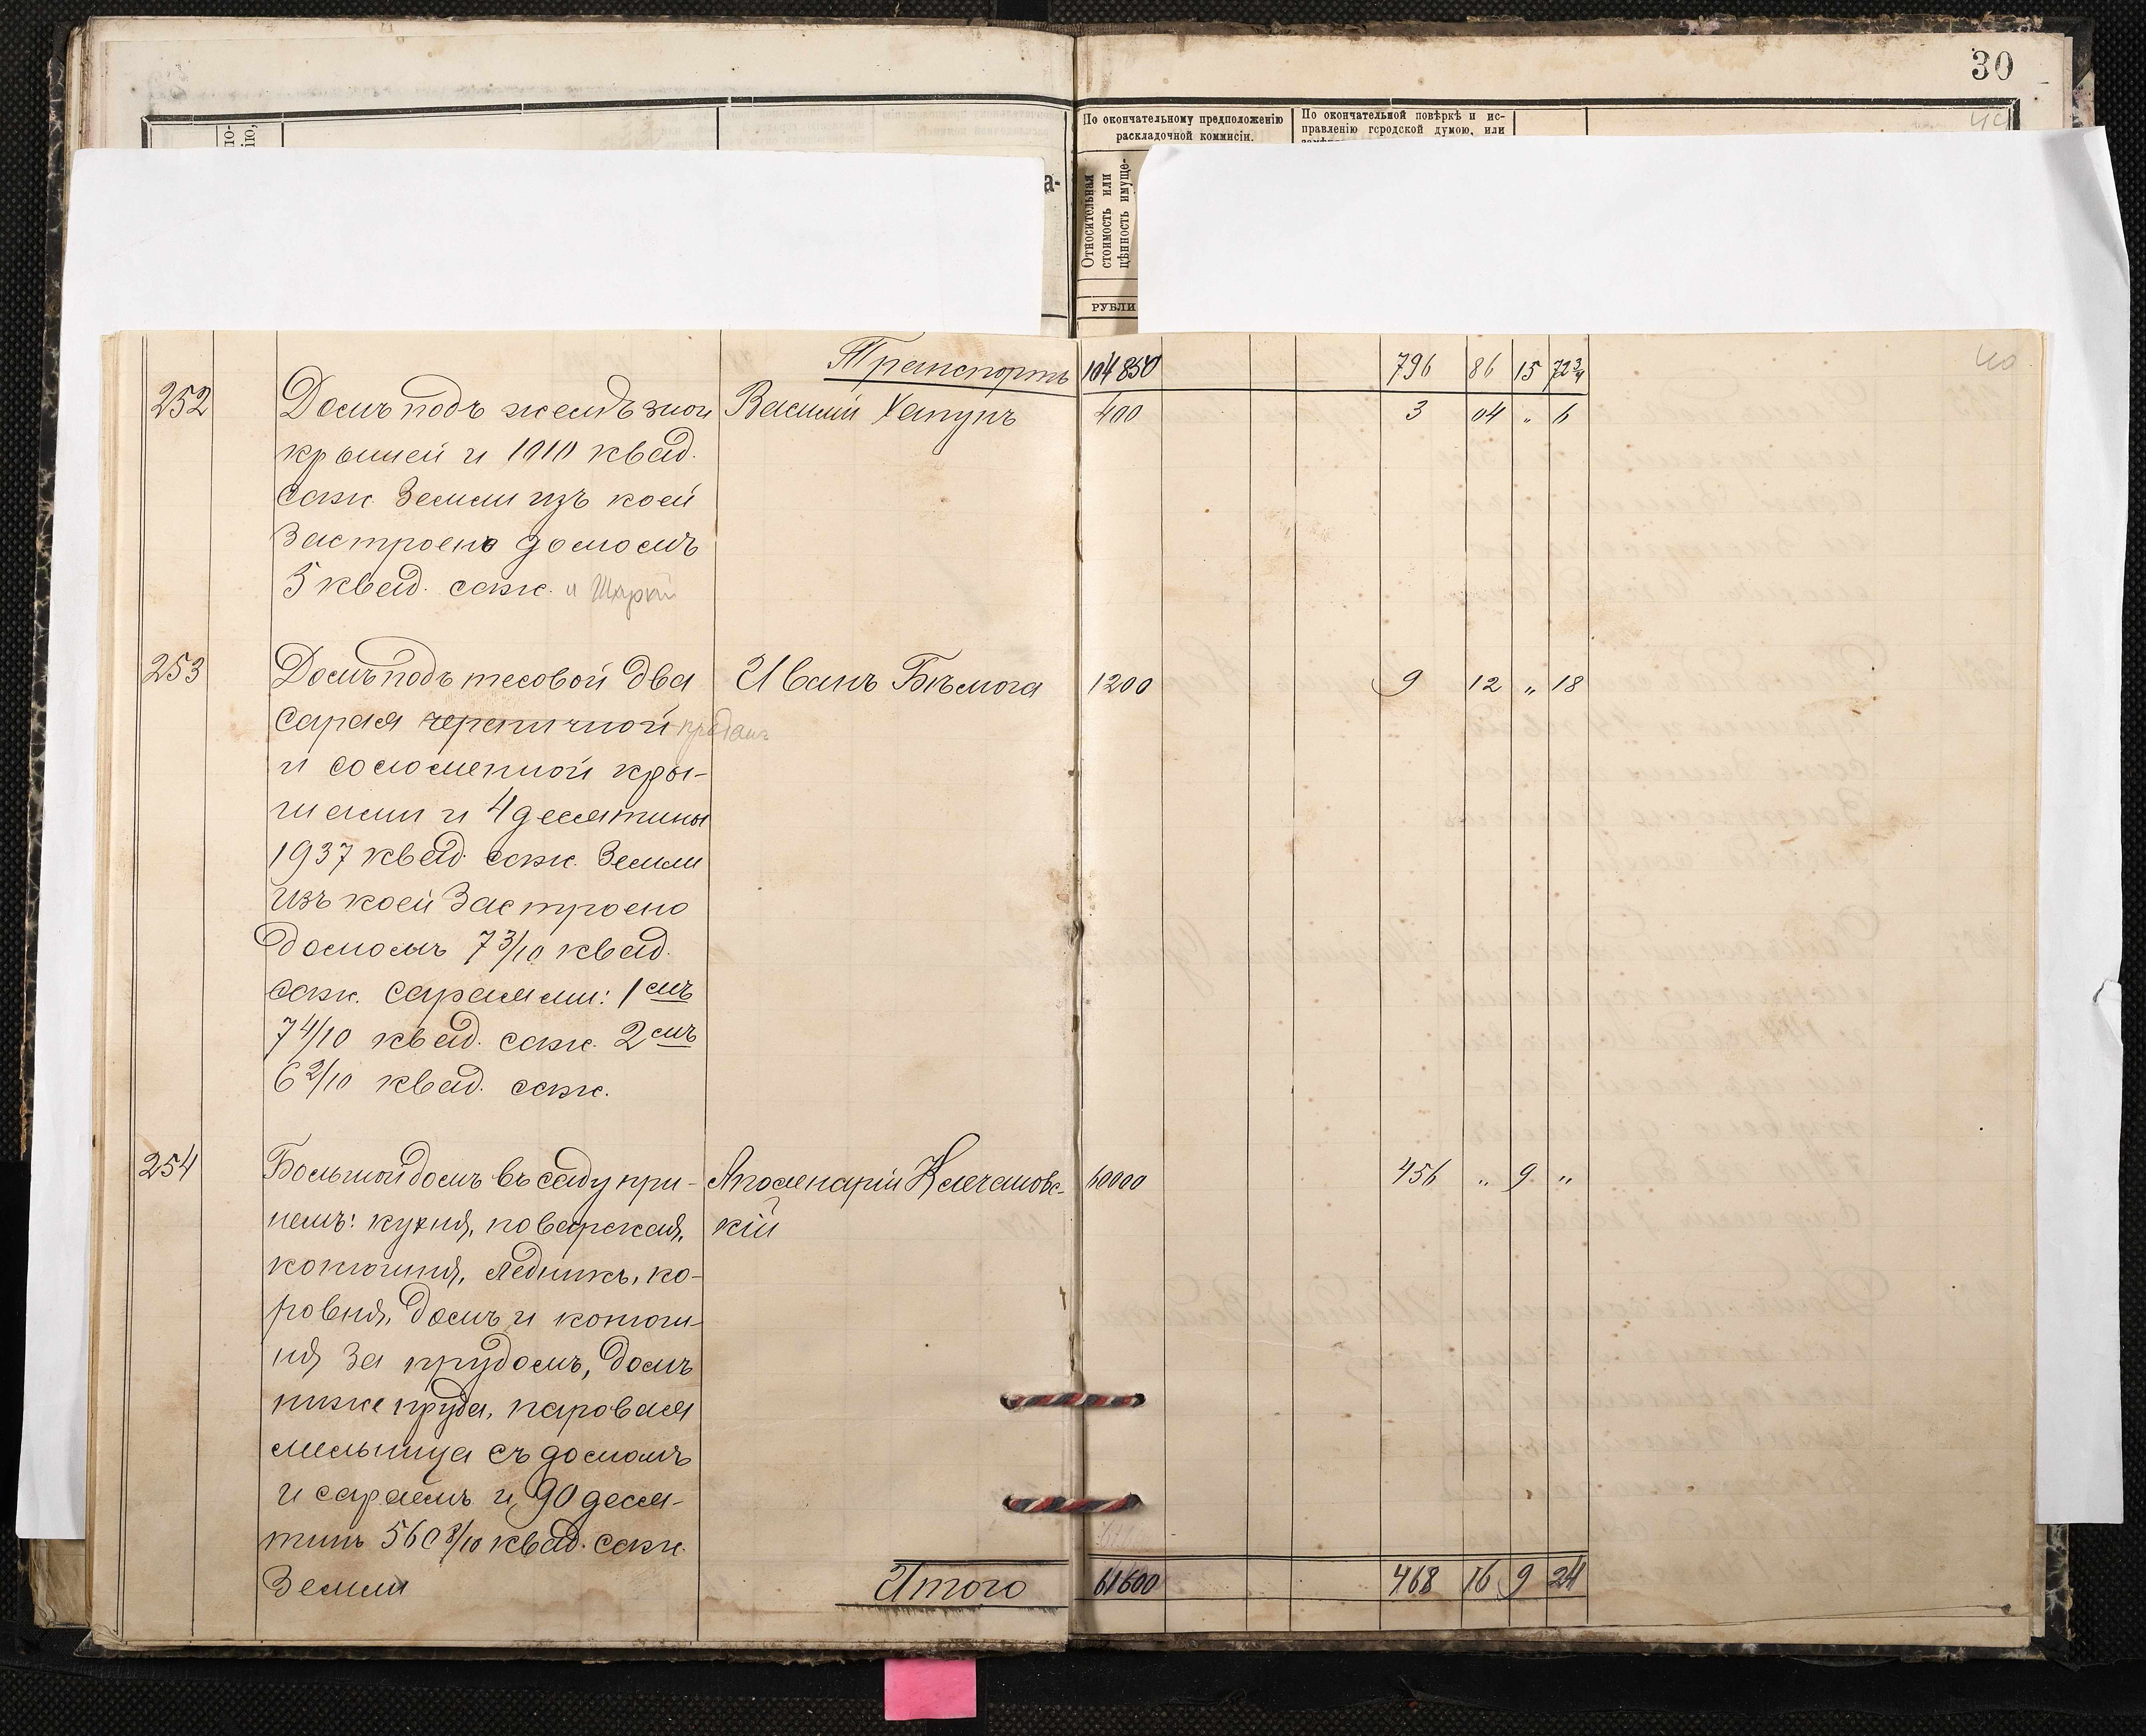 30
но-
ію,
а-
По окончательному предположенію
раскладочной коммисіи.
По окончательной повѣркѣ и ис-
правленію городской думою, или
Относительная
стоимость или
цѣнность имуще-
РУБЛИ
40
Транспортъ 104850 796 86 15 72 3/4
252 Домъ подъ желѣзной Василій Хапунъ 400 3 04 „ 6
крышей и 1010 квад.
саж. Земли изъ коей
Застроено домомъ
5 квад. саж. и
253 Домъ подъ тесовой два Иванъ Бѣлюга 1200 9 12 „ 18
сарая черепичной
и соломенной кры-
шами и 4 десятины
1937 квад. саж. Земли
изъ коей Застроено
домомъ 7 3/10 квад.
саж. сараями: 1 мъ
7 4/10 квад. саж. 2 мъ
6 2/10 квад. саж.
254 Большой домъ въ саду при- Аполенарій Клечановс- 60000 456 „ 9 „
немъ: кухня, поварская, кій
конюшня, ледникъ, ко-
ровня, домъ и конюш-
ня за прудомъ, домъ
ниже пруда, паровая
мельница съ домомъ
и сараемъ и 90 деся-
тинъ 560 8/10 квад. саж.
Земли Итого 61600 468 16 9 24